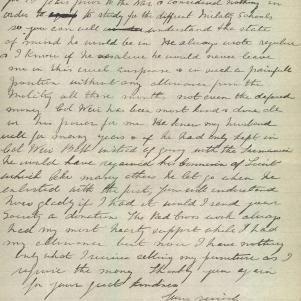 years prior to the War & considered nothing in
order to study for the different Military Schools
so you can well understand the state
of mind he would be in. He always wrote regular
& I know if he alive he would never leave
me in this cruel suspense & in such a painful
position without any allowance from the
Military all these months, not even the deferred
money. Col Weir has been most kind & done all
in his power for me. He knew my husband
well for many years & if he had only kept in
Col Weir Batt instead of going with the
he would have regained his Commission of Lieut
which like many others he let go when he
enlisted with the first. You will understand
how gladly if I had it would I send your
Society a donation. The Red Cross work always
had my most hearty support while I had
my allowance but now I have nothing
only what I receive selling my furniture as I
require the money. Thanking you again
for your great kindness
Yours sincerely